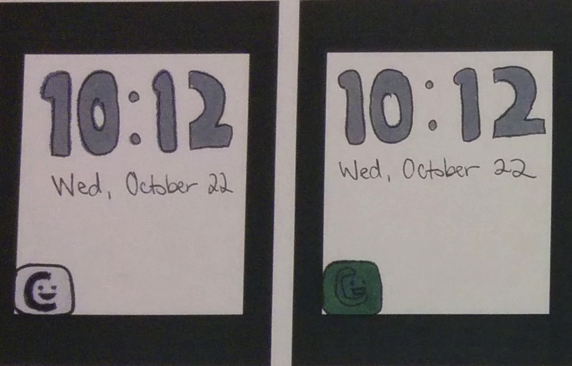 10:12
Wed, October 22
C
10:12
Wed, October 22
C